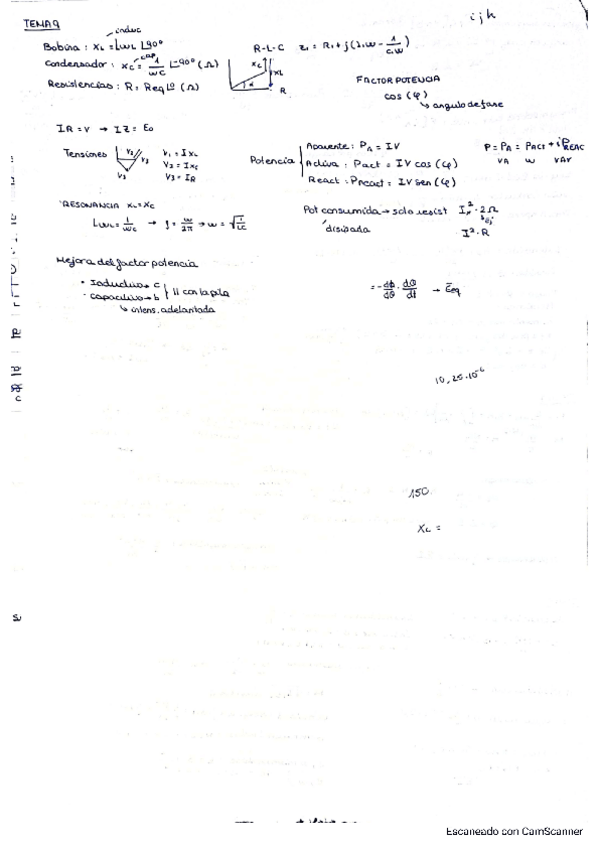 i j k
TEMA 9
induc
Bobina : XL = LωL ∟90°
cap
Condensador : Xc = 1/ωC ∟-90° (Ω)
Resistencias : R = Req ∟0 (Ω)
R-L-C Z1 = R1 + j(L1ω - 1/C1ω)
Xc XL R
FACTOR POTENCIA
cos (φ)
↳ angulo defase
IR = V → IZ = E0
Tensiones V2 V3 V3 V1 = I XL
V2 = I Xc
V3 = I R
Potencia Aparente : PA = IV
Activa : Pact = IV cos (φ)
React : Preact = IV sen (φ)
P = PA = PACT + j PREAC
VA W VAr
RESONANCIA XL = Xc
LωL = 1/ωC → f = ω/2π → ω = √1/LC
Pot consumida → solo resist I² · 2Ω
disipada I² · R
Mejora del factor potencia
• Inductivo → C
- Capacitivo → b
II con la pila
↳ intens. adelantada
= - dϕ/dθ · dθ/dt → Eeq
10,25·10⁻⁶
150
XL =
Escaneado con CamScanner